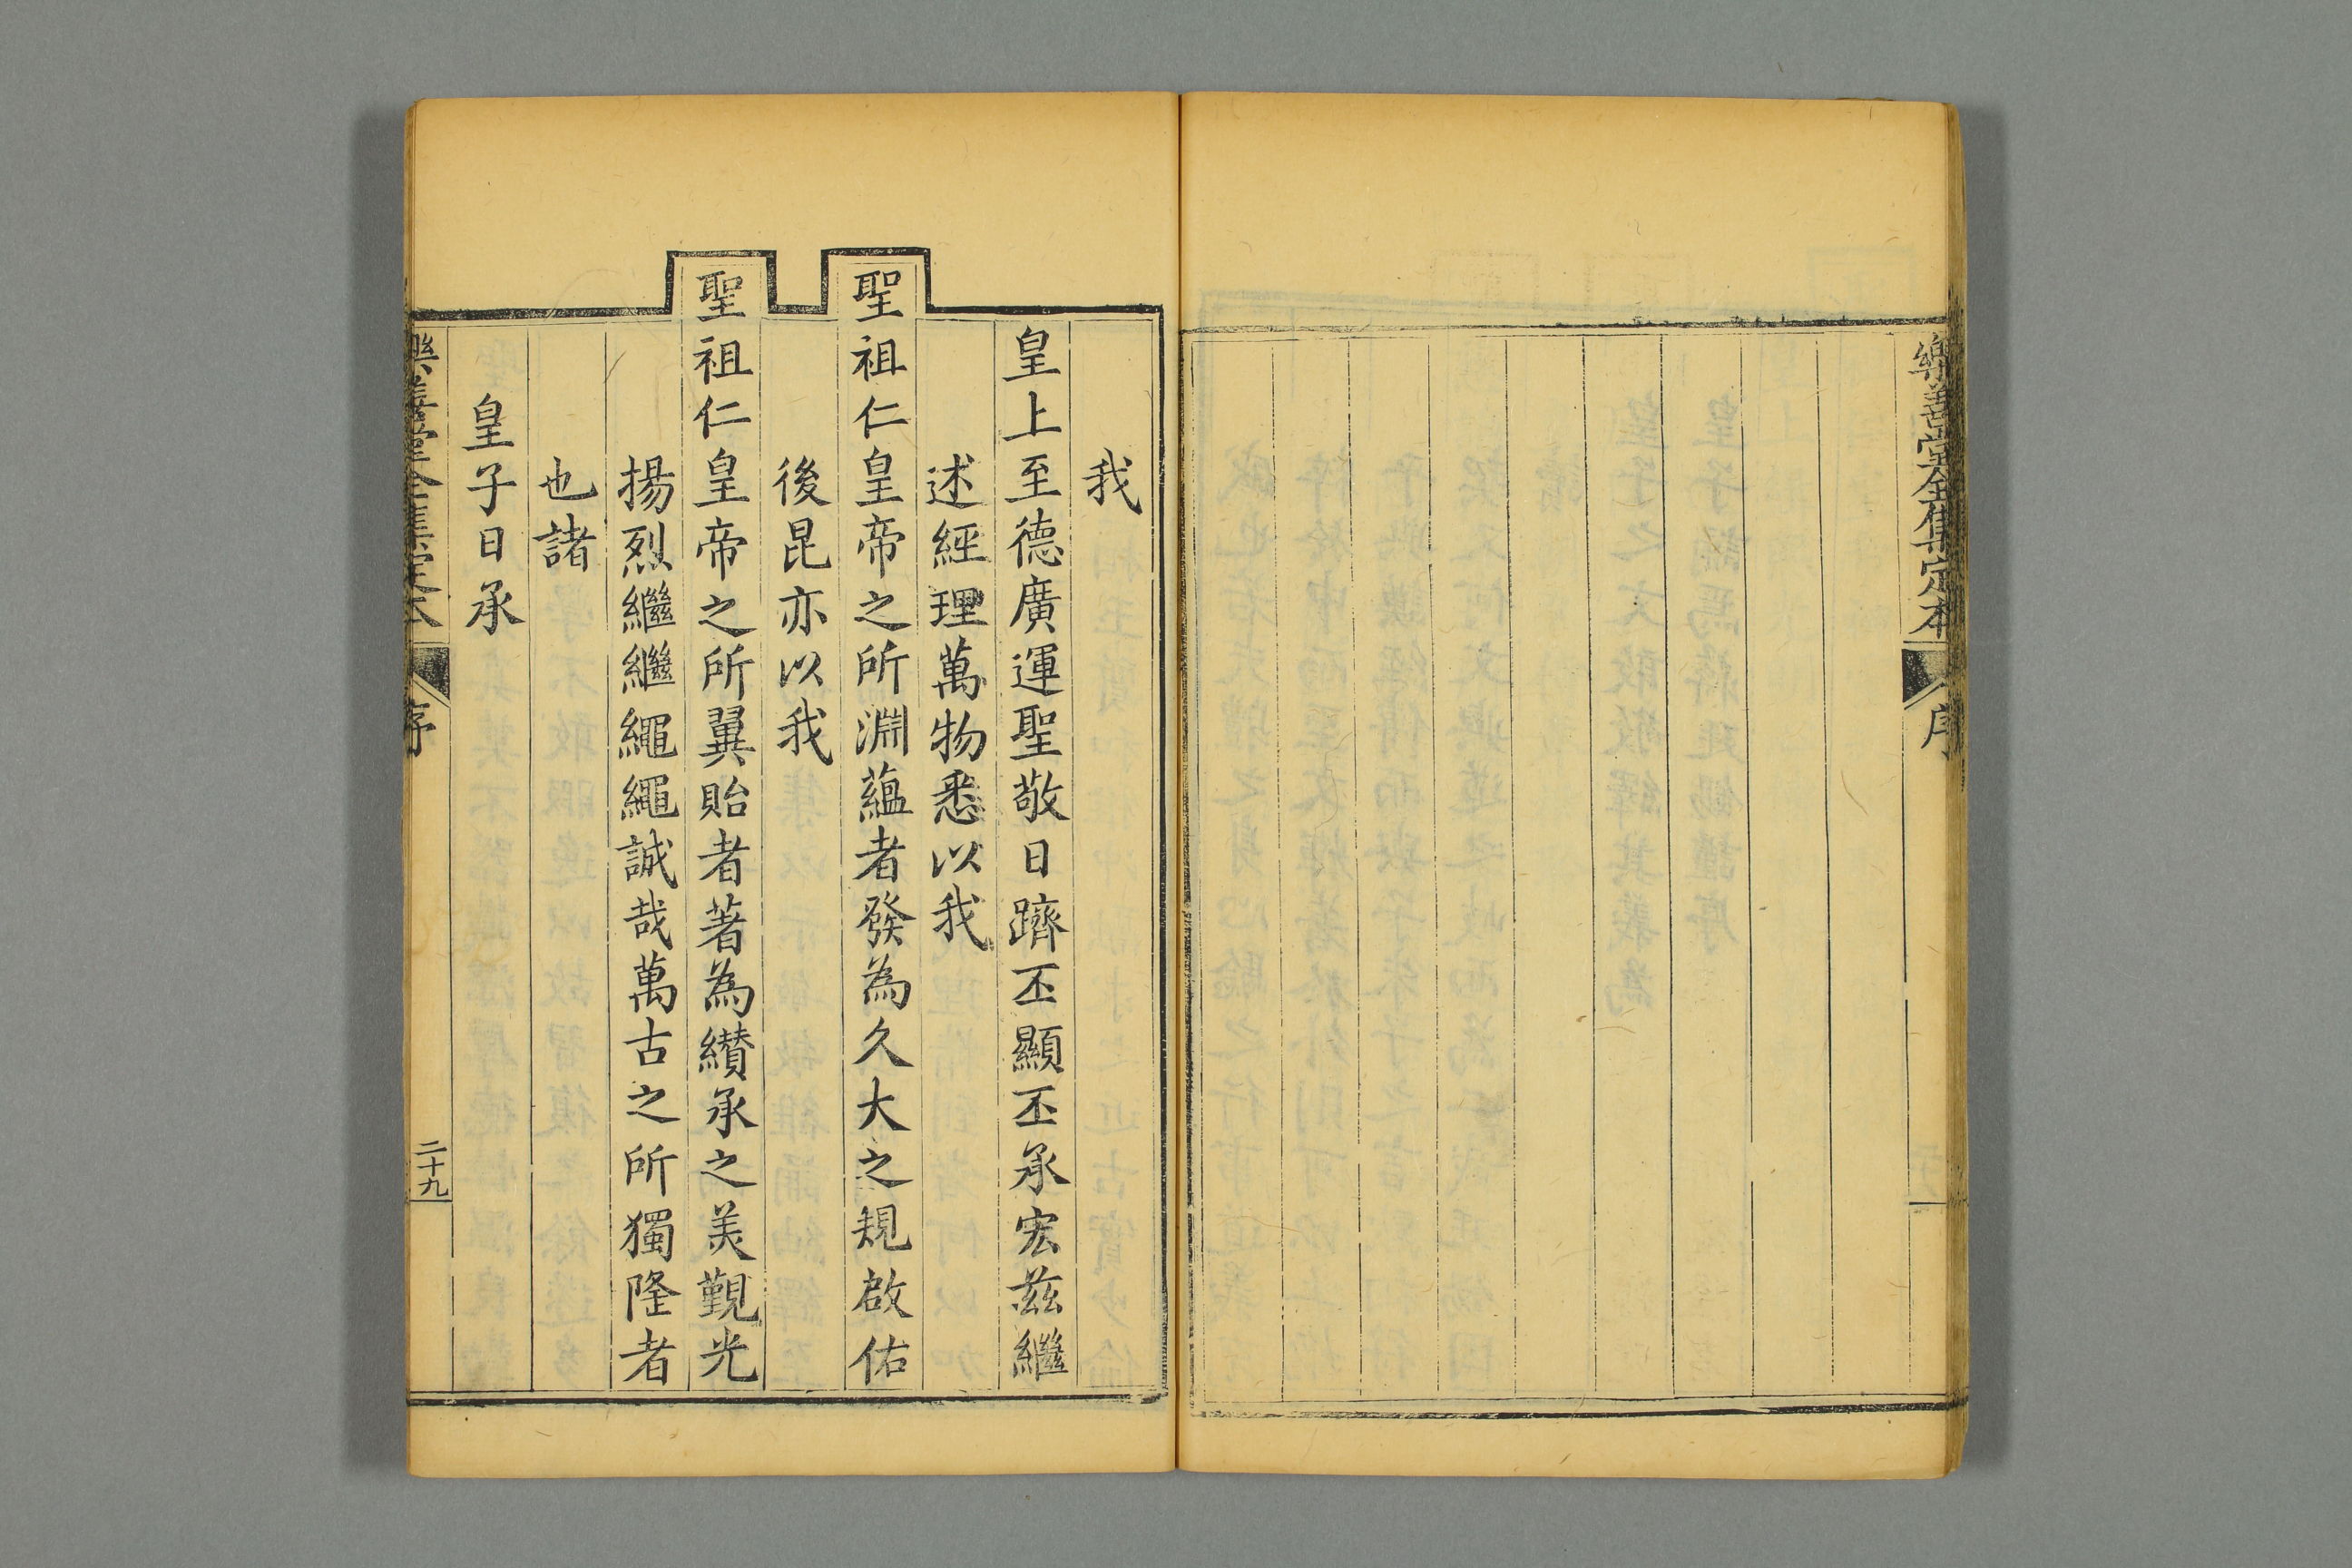 樂善堂全集定本
序
我
皇上至德廣運聖敬日躋丕顯丕承宏茲繼
述經理萬物悉以我
聖祖仁皇帝之所淵蘊者發為久大之規啟佑
後昆亦以我
聖祖仁皇帝之所翼貽者著為纘承之美覲光
揚烈繼繼繩繩誠哉萬古之所獨隆者
也諸
皇子日承
樂善堂全集定本
序
二十九